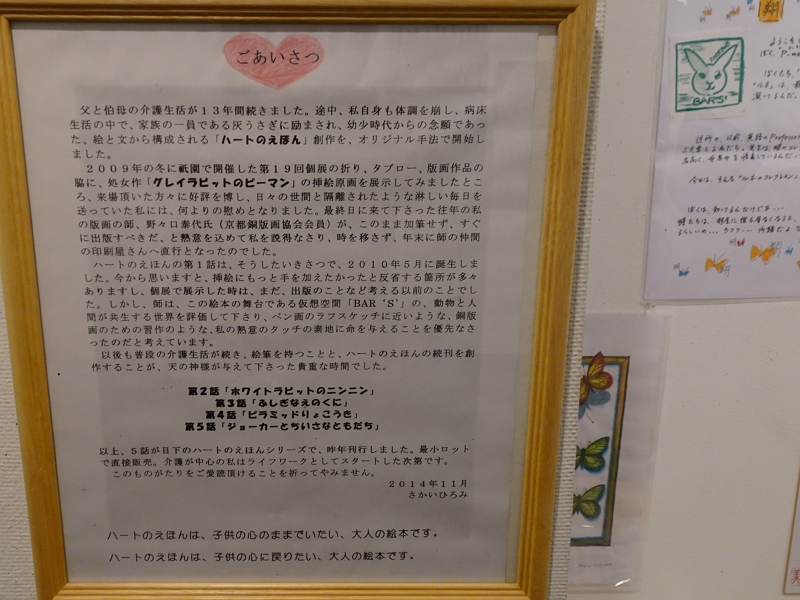 ごあいさつ
父と伯母の介護生活が13年間続きました。途中、私自身も体調を崩し、病床
生活の中で、家族の一員である灰うさぎに励まされ、幼少時代からの念願であっ
た、絵と文から構成される「ハートのえほん」創作を、オリジナル手法で開始し
ました。
2009年の冬に祇園で開催した第19回個展の折り、タブロー、版画作品の
脇に、処女作「グレイラビットのピーマン」の挿絵原画を展示してみましたとこ
ろ、来場頂いた方々に好評を博し、日々の世間と隔離されたような淋しい毎日を
送っていた私には、何よりの慰めとなりました。最終日に来て下さった往年の私
の版画の師、野々口泰代氏（京都銅版画協会会員）が、このまま加筆せず、すぐ
に出版すべきだ、と熱意を込めて私を説得なさり、時を移さず、年末に師の仲間
の印刷屋さんへ直行となったのでした。
ハートのえほんの第1話は、そうしたいきさつで、2010年5月に誕生しまし
た。今から思いますと、挿絵にもっと手を加えたかったと反省する箇所が多々
ありますし、個展で展示した時は、まだ、出版のことなど考える以前のことでし
た。しかし、師は、この絵本の舞台である仮想空間「BAR 'S'」の、動物と人
間が共生する世界を評価して下さり、ペン画のラフスケッチに近いような、銅版
画のための習作のような、私の熱意のタッチの素地に命を与えることを優先なさ
ったのだと考えています。
以後も普段の介護生活が続き、絵筆を持つことと、ハートのえほんの続刊を創
作することが、天の神様が与えて下さった貴重な時間でした。
第2話「ホワイトラビットのニンニン」
第3話「ふしぎなえのぐに」
第4話「ピラミッドりょこうき」
第5話「ジョーカーとちいさなともだち」
以上、5話が目下のハートのえほんシリーズで、昨年刊行しました。最小ロット
で直接販売。介護が中心の私はライフワークとしてスタートした次第です。
このものがたりをご愛読頂けることを祈ってやみません。
2014年11月
さかいひろみ
ハートのえほんは、子供の心のままでいたい、大人の絵本です。
ハートのえほんは、子供の心に戻りたい、大人の絵本です。
翔
BAR'S'